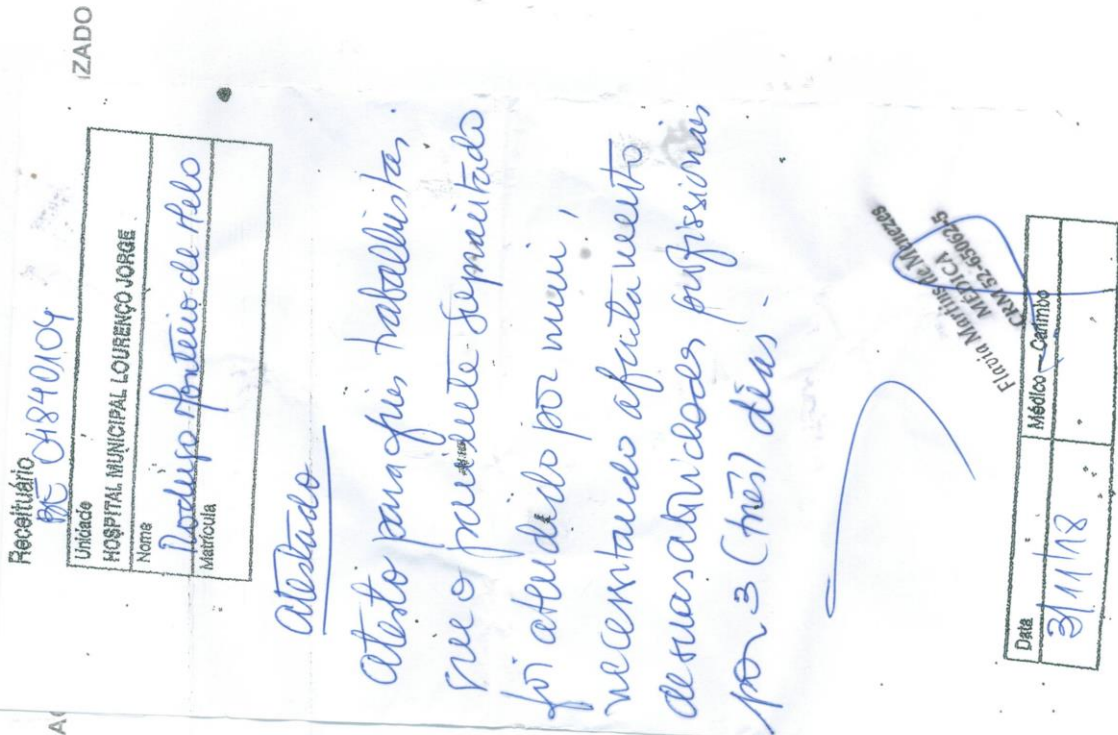 IZADO
Receituário
BE 01840104
Unidade
HOSPITAL MUNICIPAL LOURENÇO JORGE
Nome
Rodrigo Monteiro de Melo
Matrícula
Atestado
Atesto para fins trabalhistas,
que o paciente supracitado
foi atendido por mim,
necessitando afastamento
de suas atividades profissionais
por 3 (três) dias.
Flavia Martins de Menezes
MÉDICA
CRM 52-65062-5
Data
Médico - Carimbo
3/11/18